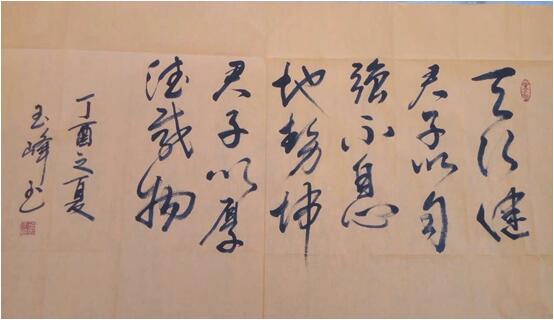 天行健
君子以自
強不息
地势坤
君子以厚
德载物
丁酉之夏
玉峰书